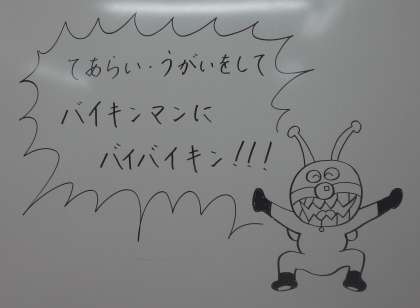 てあらい・うがいをして
バイキンマンに
バイバイキン!!!